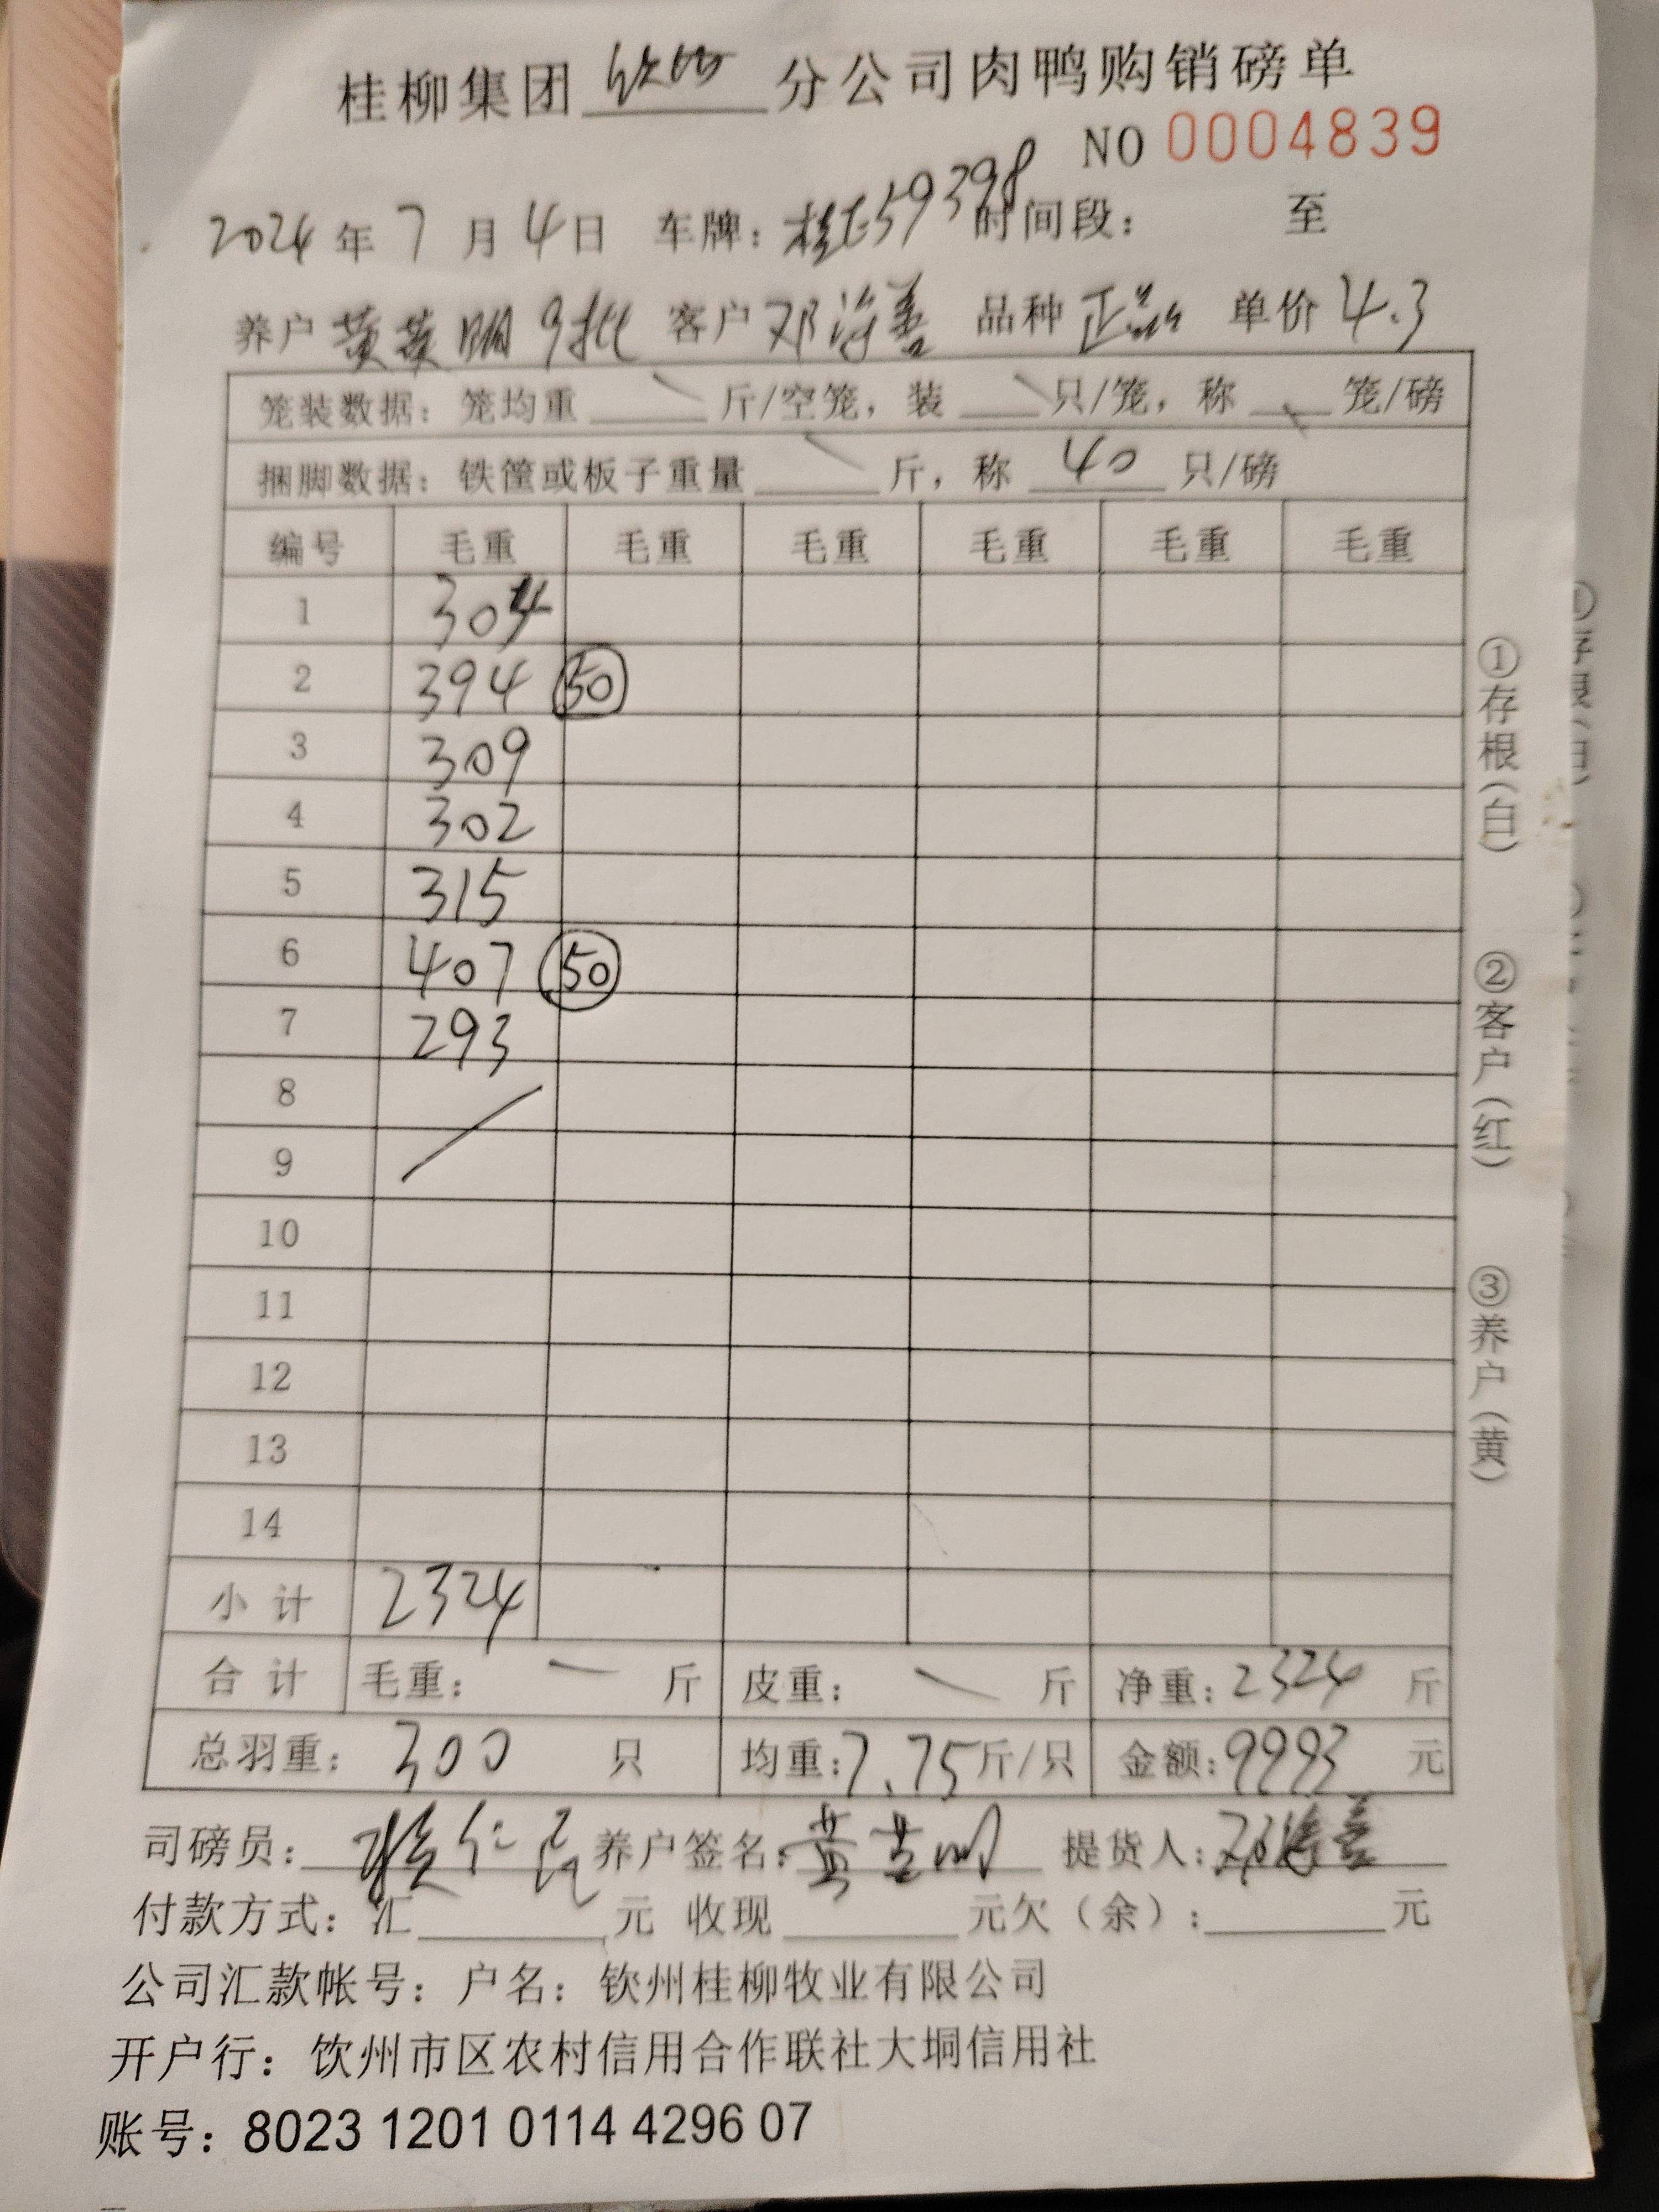 桂柳集团 钦州 分公司肉鸭购销磅单
NO 0004839
2024 年 7 月 4 日 车牌： 59398 时间段： 至
养户 黄 明 9批 客户 邓海善 品种 正品 单价 4.3
笼装数据：笼均重 斤/空笼，装 只/笼，称 笼/磅
捆脚数据：铁筐或板子重量 斤，称 40 只/磅
编号 毛重 毛重 毛重 毛重 毛重 毛重
1 304
2 394 50
3 309
4 302
5 315
6 407 50
7 293
8
9
10
11
12
13
14
小计 2324
合计 毛重： 斤 皮重： 斤 净重：2324 斤
总羽重： 300 只 均重：7.75斤/只 金额：9993 元
司磅员： 养户签名：黄 明 提货人：邓海善
付款方式：汇 元 收现 元欠（余）： 元
公司汇款帐号：户名：钦州桂柳牧业有限公司
开户行：饮州市区农村信用合作联社大垌信用社
账号：8023 1201 0114 4296 07
①存根（白）
②客户（红）
③养户（黄）